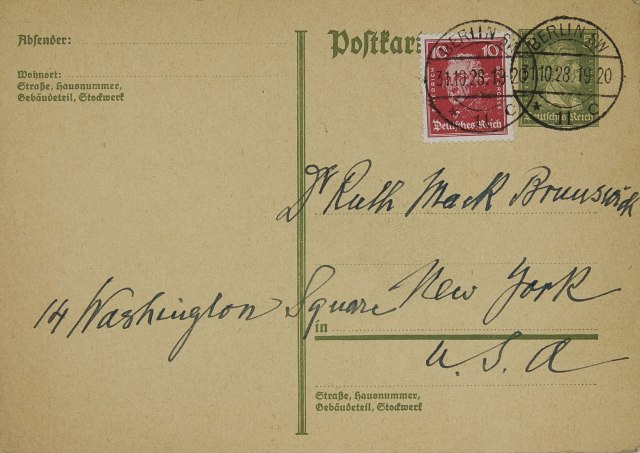 Absender:
Wohnort:
Straße, Hausnummer,
Gebäudeteil, Stockwerk
Postkar
10 10
FRIEDRICH
Deutsches Reich
BERLIN SW
31.10.28.19-20
* 11 C
BERLIN SW
31.10.28.19-20
* 11 C
Deutsches Reich
Dr Ruth Mack Brunswick
14 Washington Square New York
in
U.S.A
Straße, Hausnummer,
Gebäudeteil, Stockwerk